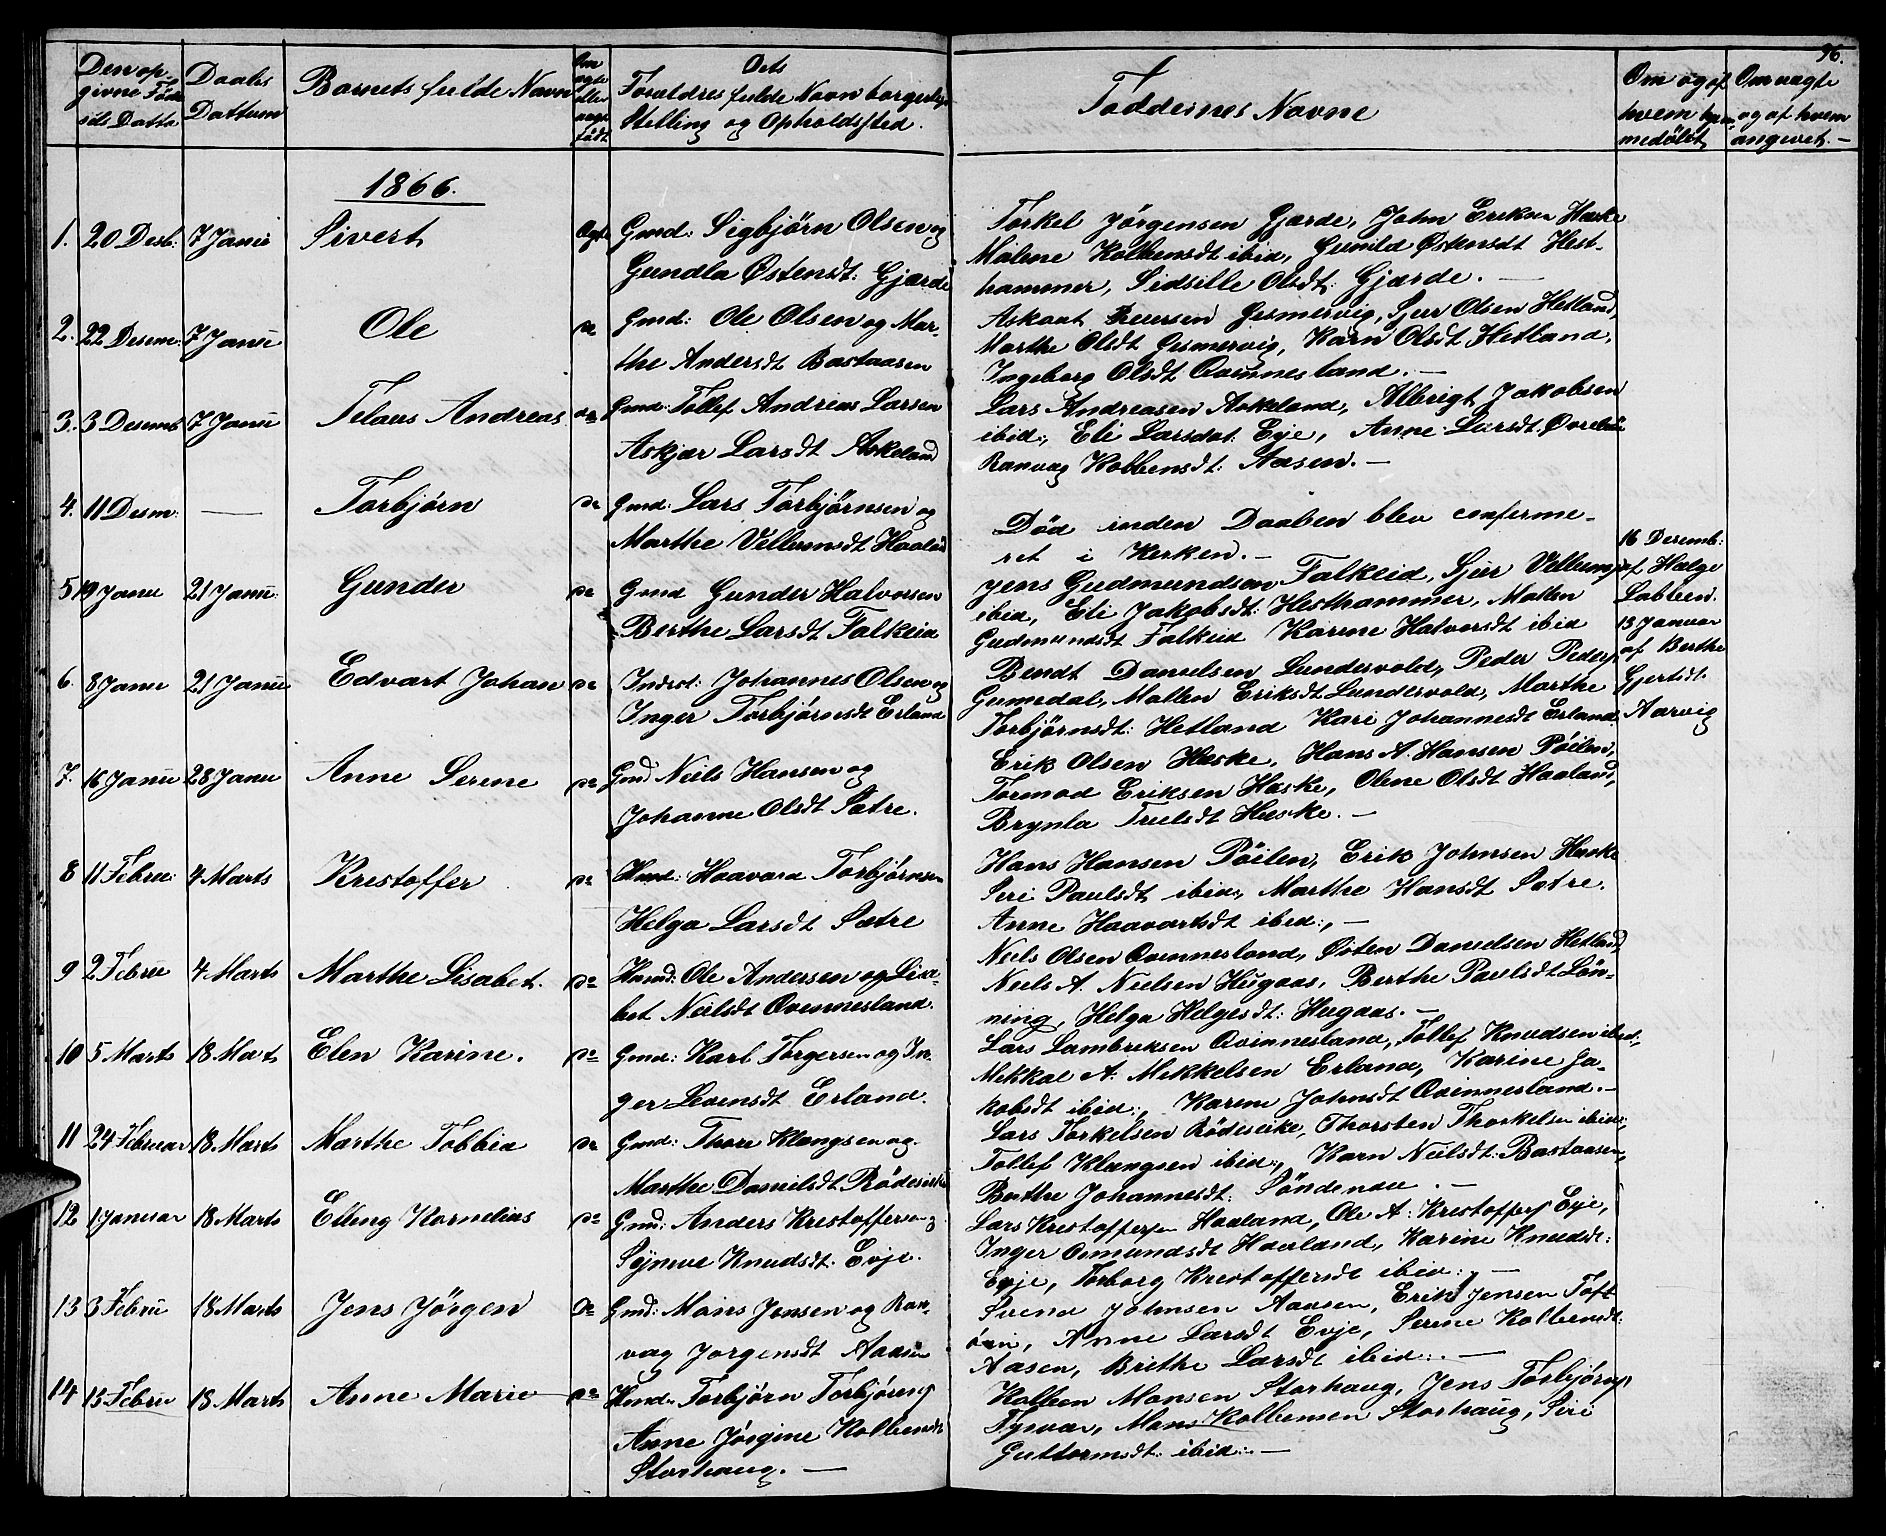 96.
Den op- givne Føds- els Datto
Daabs Dattum
Barnets fulde Navn
Om ægte eller uægte født
Dets Forældres fulde Navn borgerlige Stelling og Opholdssted.
Faddernes Navne
Om og af hvem hjemmedøbt
Om uægte og af hvem angevet.-
1866.
1. 20 Desb: 7 Janū Sivert Ægte Gmd: Sigbjørn Olsen og
Gundla Østensdt: Gjærde
Torkel Jørgensen Gjærde, John Eriksen Hæske
Malene Kolbensdt ibid, Gunild Østensdt Hest-
hammer, Sidsille Olsdt: Gjærde. -
2. 22 Desem: 7 Janū Ole do Gmd: Ole Olsen og Mar-
the Andersdt Bastaasen
Askaut Iversen Gismervig, Sjur Olsen Hetland,
Marthe Olsdt Gismervig, Karn Olsdt Hetland,
Ingeborg Olsdt Qvinnesland. -
3. 3 Desemb 7 Janū Telaus Andreas do Gmd: Tollef Andreas Larsen
Askjær Larsdt Askeland
Lars Andreasen Askeland, Albrigt Jakobsen
ibid:, Eli Larsdat: Evje, Anne Larsdt.
Ranvag Kolbensdt: Aasen. -
4. 11 Desm: — Torbjørn do Gmd: Lars Torbjørnsen og
Marthe Vellumsdt Haaland
Død inden Daaben blev conferme-
ret i Kerken. -
16 Desemb: af Helge Labben.
5 19 Janu 21 Janū: Gunder do Gmd Gunder Halvorsen
Berthe Larsdt Falkeid
Jens Gudmundsen Falkeid, Sjur Vellums
ibid, Eli Jakobsdt: Hesthammer, Mallen
Gudmundsdt Falkeid Karine Halvorsdt ibid
13 Januar af Berthe Gjertsdt: Aarvig
6. 8 Janu 21 Janū Edvart Johan do Inderst: Johannes Olsen og
Inger Torbjørnsdt Erland
Bendt Danielsen Lundervold, Peder Peders
Gumedal, Mallen Eriksdt Lundervold, Marthe
Torbjørnsdt: Hetland Kari Johannesdt Erland
7. 16 Janū 28 Janu Anne Serine do Gmd Neils Hansen og
Johanne Olsdt Sætre.
Erik Olsen Hæske, Hans A. Hansen Pøilen,
Tormod Eriksen Hæske, Olene Olsdt Haaland,
Brynla Truelsdt Hæske. -
8 11 Febru: 4 Marts Krestoffer do Haavard Torbjørnsen
Helga Larsdt Sætre
Hans Hansen Pøilen, Erik Johnsen Hæske
Siri Paulsdt ibid, Marthe Hansdt Sætre.
Anne Haavartsdt ibid:, -
9 2 Febru 4 Marts Marthe Lisabet. do Husmd: Ole Andersen og Lisa-
bet Neilsdt Qvinnesland.
Neils Olsen Qvinnesland, Østen Danielsen Hetland
Neils A. Nielsen Hugaas, Berthe Paulsdt Løn-
ning, Helga Helgesdt: Hugaas. -
10 5 Marts 18 Marts Elen Karine. do Gmd: Karl Torgersen og In-
ger Evensdt Erland.
Lars Lambriksen Qvinnesland, Tollef Knudsen ibid:,
Mikkal A. Mikkelsen Erland, Karine Ja-
kobsdt ibid:, Karen Johnsdt Qvinnesland.-
11 24 Februar 18 Marts Marthe Tobbia do Gmd: Thore Klungsen og
Marthe Danielsdt Rødseike
Lars Torkelsen Rødeseike, Thorsten Thorkelsen ibid:,
Tollef Klungsen ibid:, Karn Neilsdt: Bastaasen,
Berthe Johannesdt: Søndenau. -
12 1 Januar 18 Marts Elling Kornelius do Gmd: Anders Krestoffersen og
Synneve Knudsdt. Evje.
Lars Krestoffersen Haaland, Ole A: Krestoffers Evje,
Inger Osmundsdt Haaland, Karine Knudsdt:
Evje, Torborg Krestoffersdt ibid:, -
13 3 Febru 18 Marts Jens Jørgen do Gmd: Mons Jensen og Ran-
vag Jørgensdt Aaasen
Svend Johnsen Aaasen, Erik Jensen Toft
øien, Anne Larsdt Evje, Serine Kolbensdt:
Aasen, Brithe Larsdt ibid:. -
14 15 Febru 18 Marts Anne Marie do Husmd: Torbjørn Torbjørns og
Anne Jørgine Kolbensdt
Storhaug. —
Kolben Monsen Storhaug, Jens Torbjørns
Tysvær, Mons Kolbensen Storhaug, Siri
Guttormsdt: ibid:. -